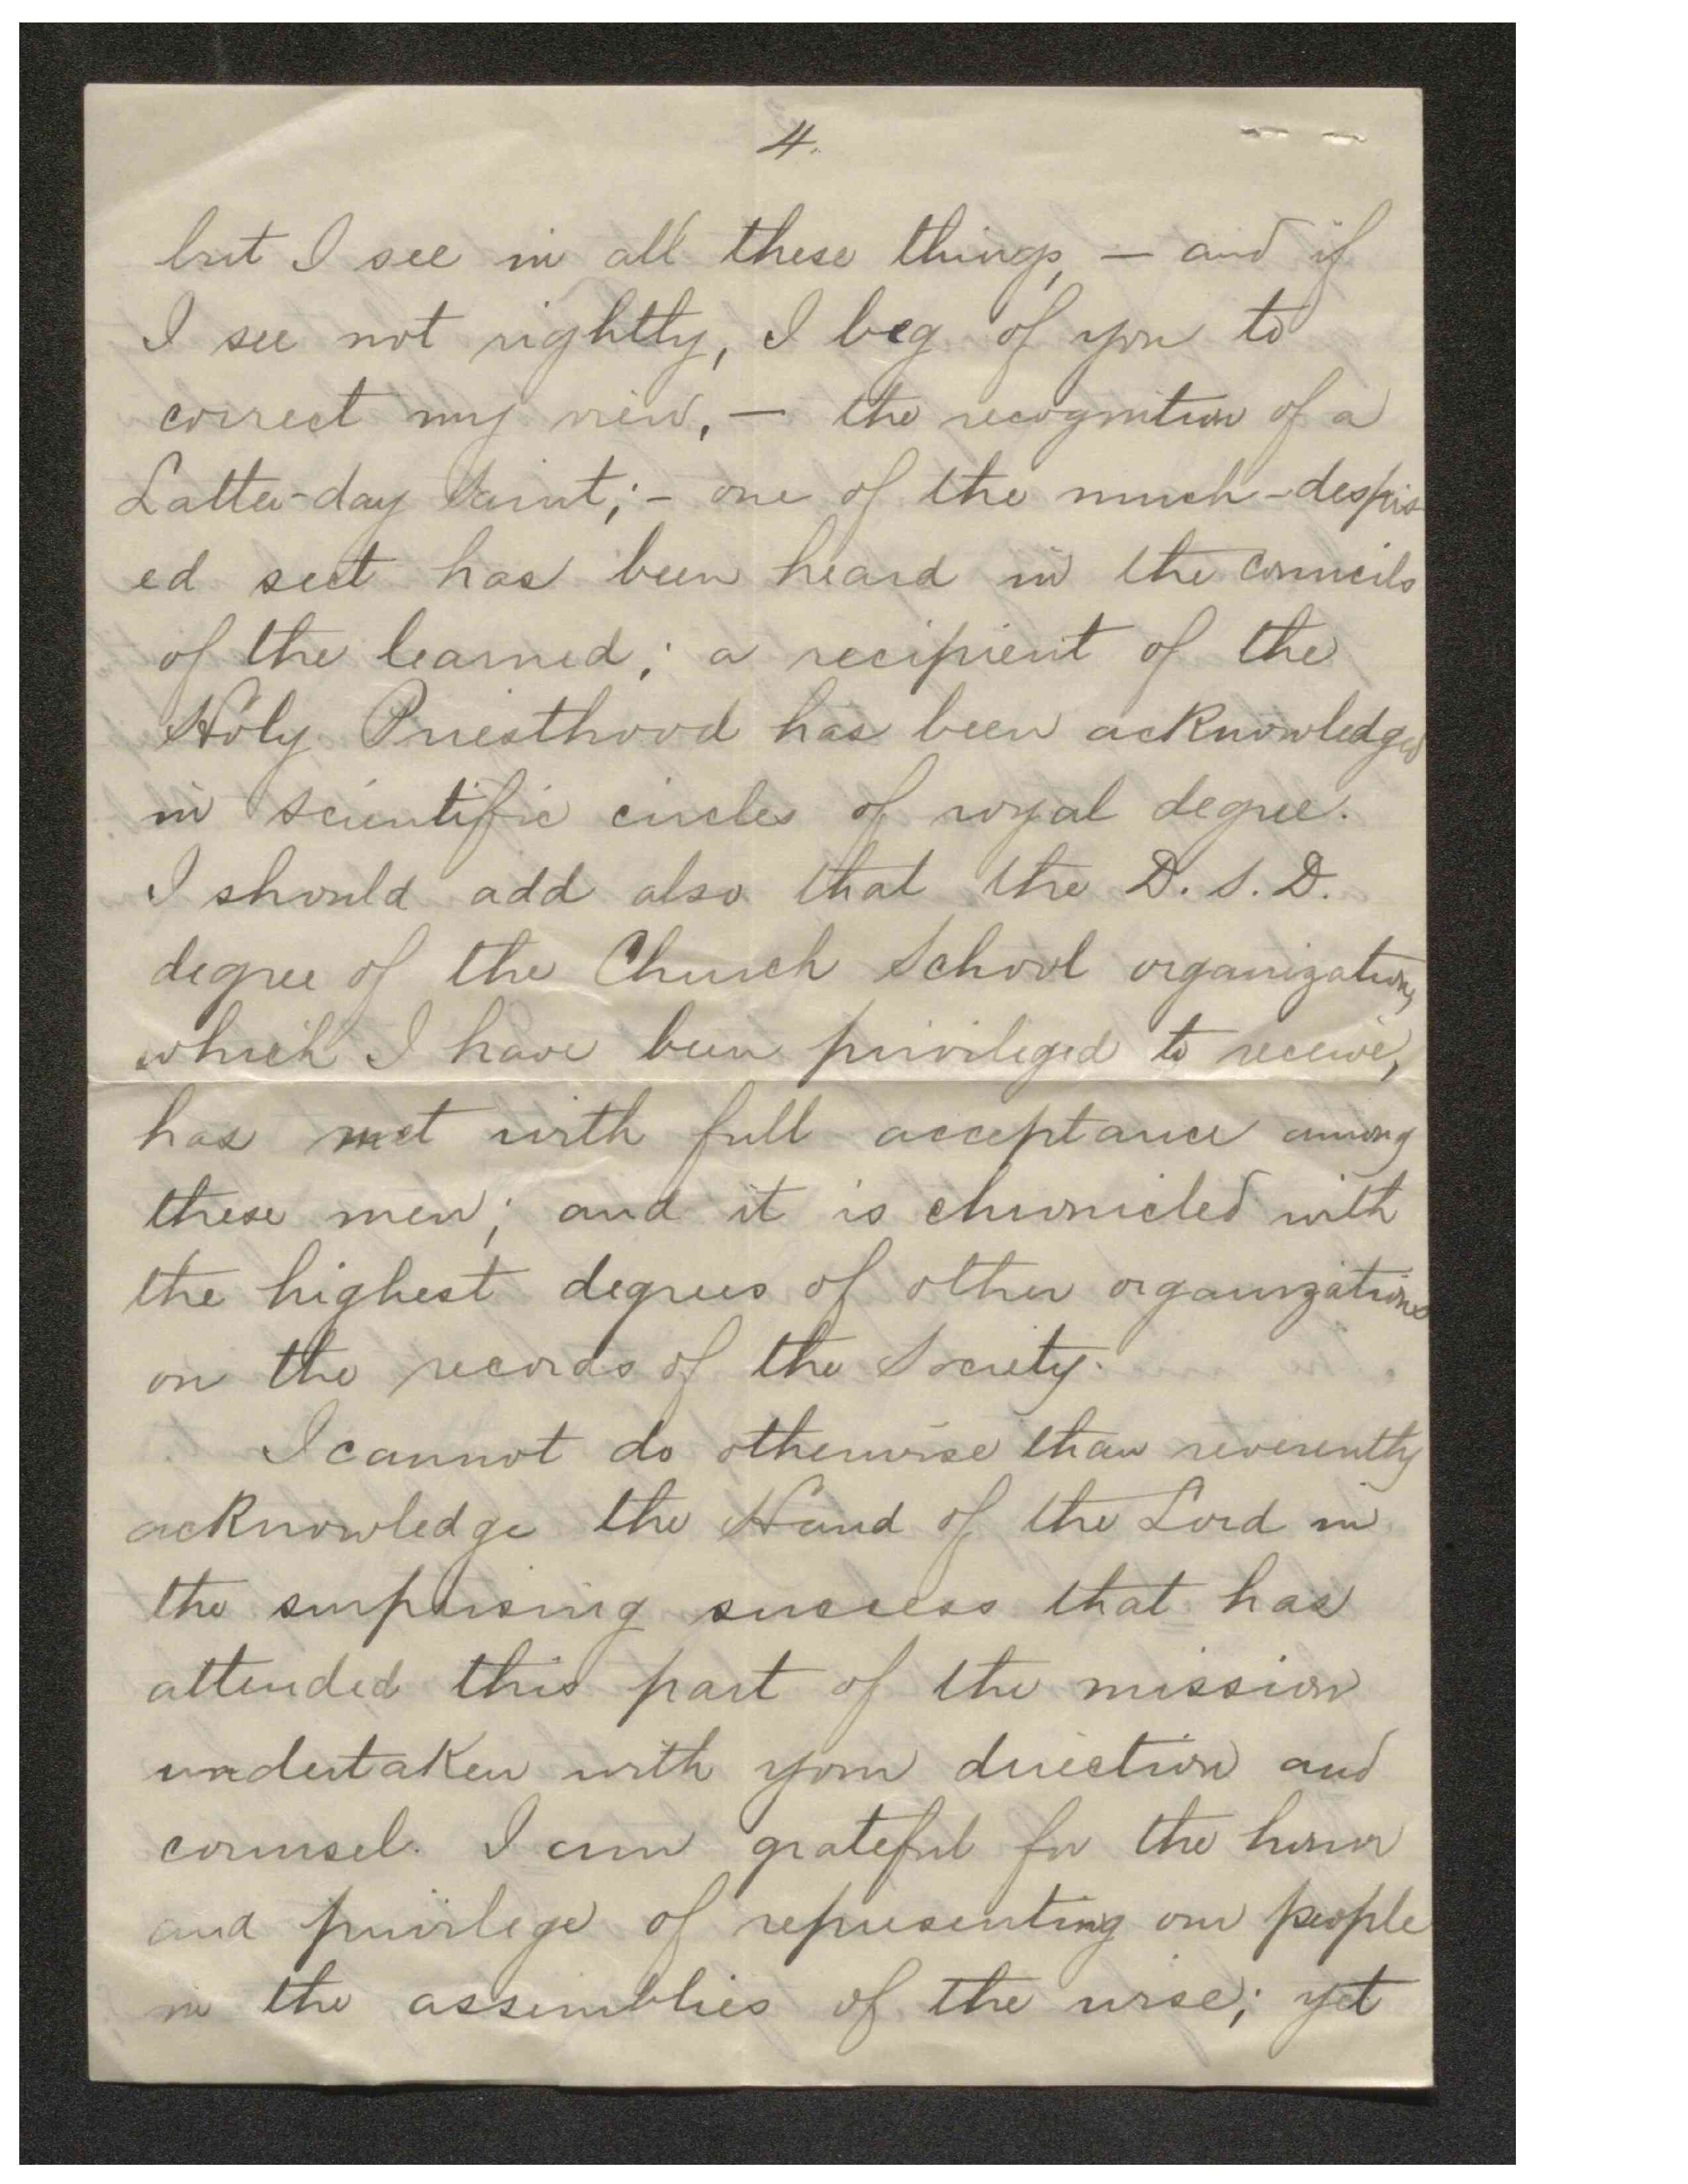 4.
but I see in all these things, — and if
I see not rightly, I beg of you to
correct my view, — the recognition of a
Latter-day Saint; - one of the much-despis-
ed sect has been heard in the councils
of the learned; a recipient of the
Holy Priesthood has been acknowledged
in scientific circles of royal degree.
I should add also that the D. S. D.
degree of the Church School organization,
which I have been privileged to receive,
has met with full acceptance among
these men; and it is chronicled with
the highest degrees of other organizations
on the records of the Society.
I cannot do otherwise than reverently
acknowledge the Hand of the Lord in
the surprising success that has
attended this part of the mission
undertaken with your direction and
counsel. I am grateful for the honor
and privilege of representing our people
in the assemblies of the wise; yet